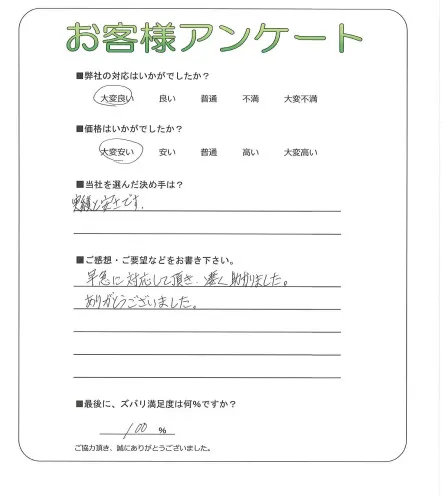 お客様アンケート
■弊社の対応はいかがでしたか？
大変良い 良い 普通 不満 大変不満
■価格はいかがでしたか？
大変安い 安い 普通 高い 大変高い
■当社を選んだ決め手は？
実績と安さです。
■ご感想・ご要望などをお書き下さい。
早急に対応して頂き、凄く助かりました。
ありがとうございました。
■最後に、ズバリ満足度は何%ですか？
100 %
ご協力頂き、誠にありがとうございました。